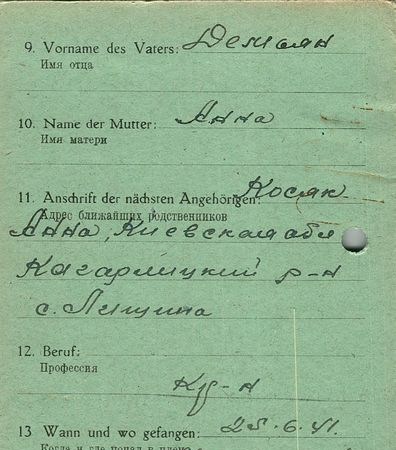 9. Vorname des Vaters: Демьян
Имя отца
10. Name der Mutter: Анна
Имя матери
11. Anschrift der nächsten Angehörigen: Косяк
Адрес ближайших родственников
Анна, Киевская обл
Кагарлицкий р-н
с. Лещина
12. Beruf:
Профессия
Кр-н
13 Wann und wo gefangen: 25.6.41.
Когда и где попал в плен: